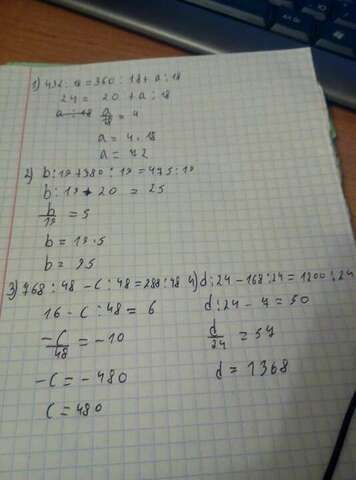 1) 432 : 18 = 360 : 18 + a : 18
24 = 20 + a : 18
a : 18 a/18 = 4
a = 4 . 18
a = 72
2) b : 19 + 380 : 19 = 475 : 19
b : 19 + 20 = 25
b/19 = 5
b = 19 . 5
b = 95
3) 768 : 48 - C : 48 = 288 : 48
16 - C : 48 = 6
-C/48 = -10
-C = -480
C = 480
4) d : 24 - 168 : 24 = 1200 : 24
d : 24 - 7 = 50
d/24 = 57
d = 1368